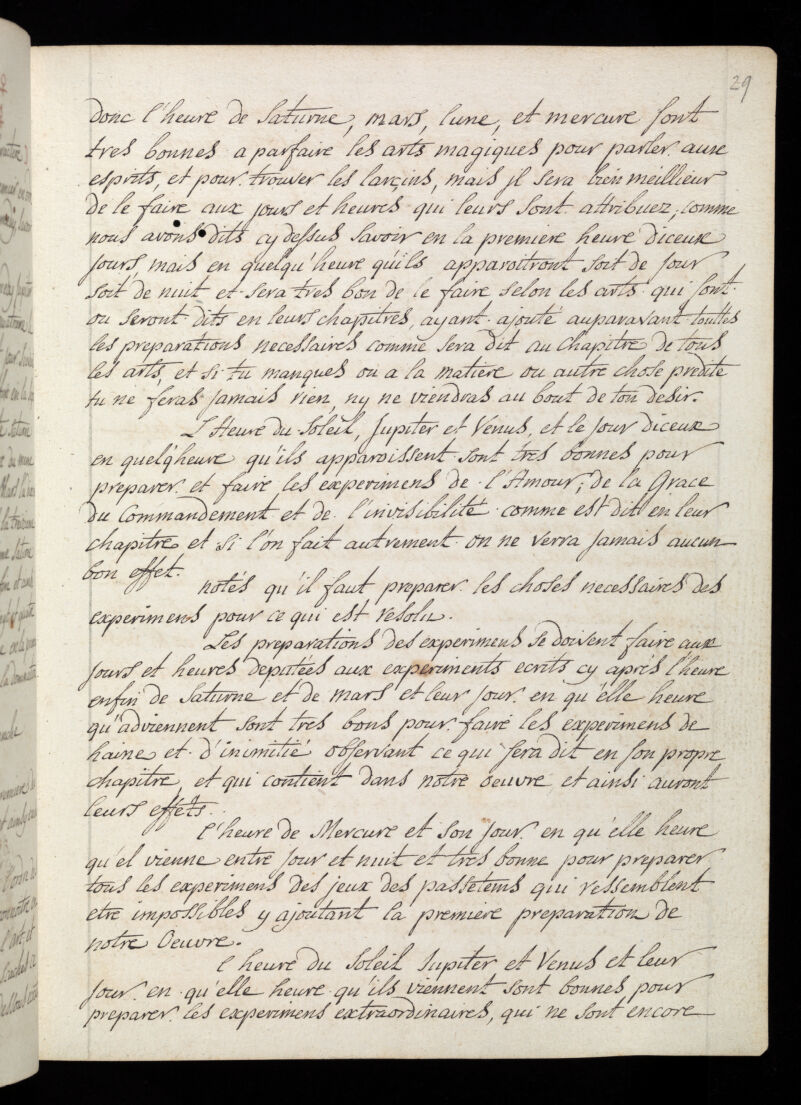 29
donc l'heure de Saturne, mars, lune, et mercure sont
tres bonnes a parfaire les arts magiques pour parler aux
esprits, et pour trouver les larçins, mais jl sera bien meilleur
de le faire aux jours et heures qui leurs sont attribuez, comme
nous avons dits cy dessus savoir en la premiere heure diceux
jours, mais en quelqu'heure qu'ils apparoitront soit de jour
soit de nuit et sera tres bon de le faire selon les arts qui sont
ou seront dits en leurs chapitres, ayant ajouté auparavant touttes
les preparations necessaires comme sera dit au Chapitre de tous
les arts, et si tu manques ou a la matiere ou autre chose predite
tu ne feras jamais rien, ny ne viendras au bout de ton desir.
L'Heure du Soleil, Jupiter et Venus, et le jour diceux
en quelq'heure qu'ils apparoissent sont tres bonnes pour
preparer et faire les experimens de l'Amour, de la Grace
du Commandement et de l'invisibilité comme est dit en leur
chapitre et si l'on fait autrement on ne verra jamais aucun
bon effet.
notés qu'il faut preparer les choses necessaires des
experimens pour ce qui est resolu.
Les preparations des experimens se doivent faire aux
jours et heures deputées aux experiments ecrits cy aprés l'heure
enfin de Saturne et de mars et leur jour en qu'elle heure
qu'adviennent sont tres bons pour faire les experimens de
haine et d'inimitié observant ce qui sera dit en son propre
chapitre et qui contient dans notre oeuvre et ainsi auront
leurs effets.
l'heure de Mercure et son jour en qu'elle heure
qu'el vienne entre jour et nuit et tres bonne pour preparer
tous les experimens des jeux des passetems qui ressemblent
etre impossibles y ajoutant la premiere preparation de
notre Oeuvre.
l'heure du Soleil Jupiter et Venus et leur
jour en qu'elle heure qu'ils viennent sont bonnes pour
preparer les experimens extraordinaires, qui ne sont encore